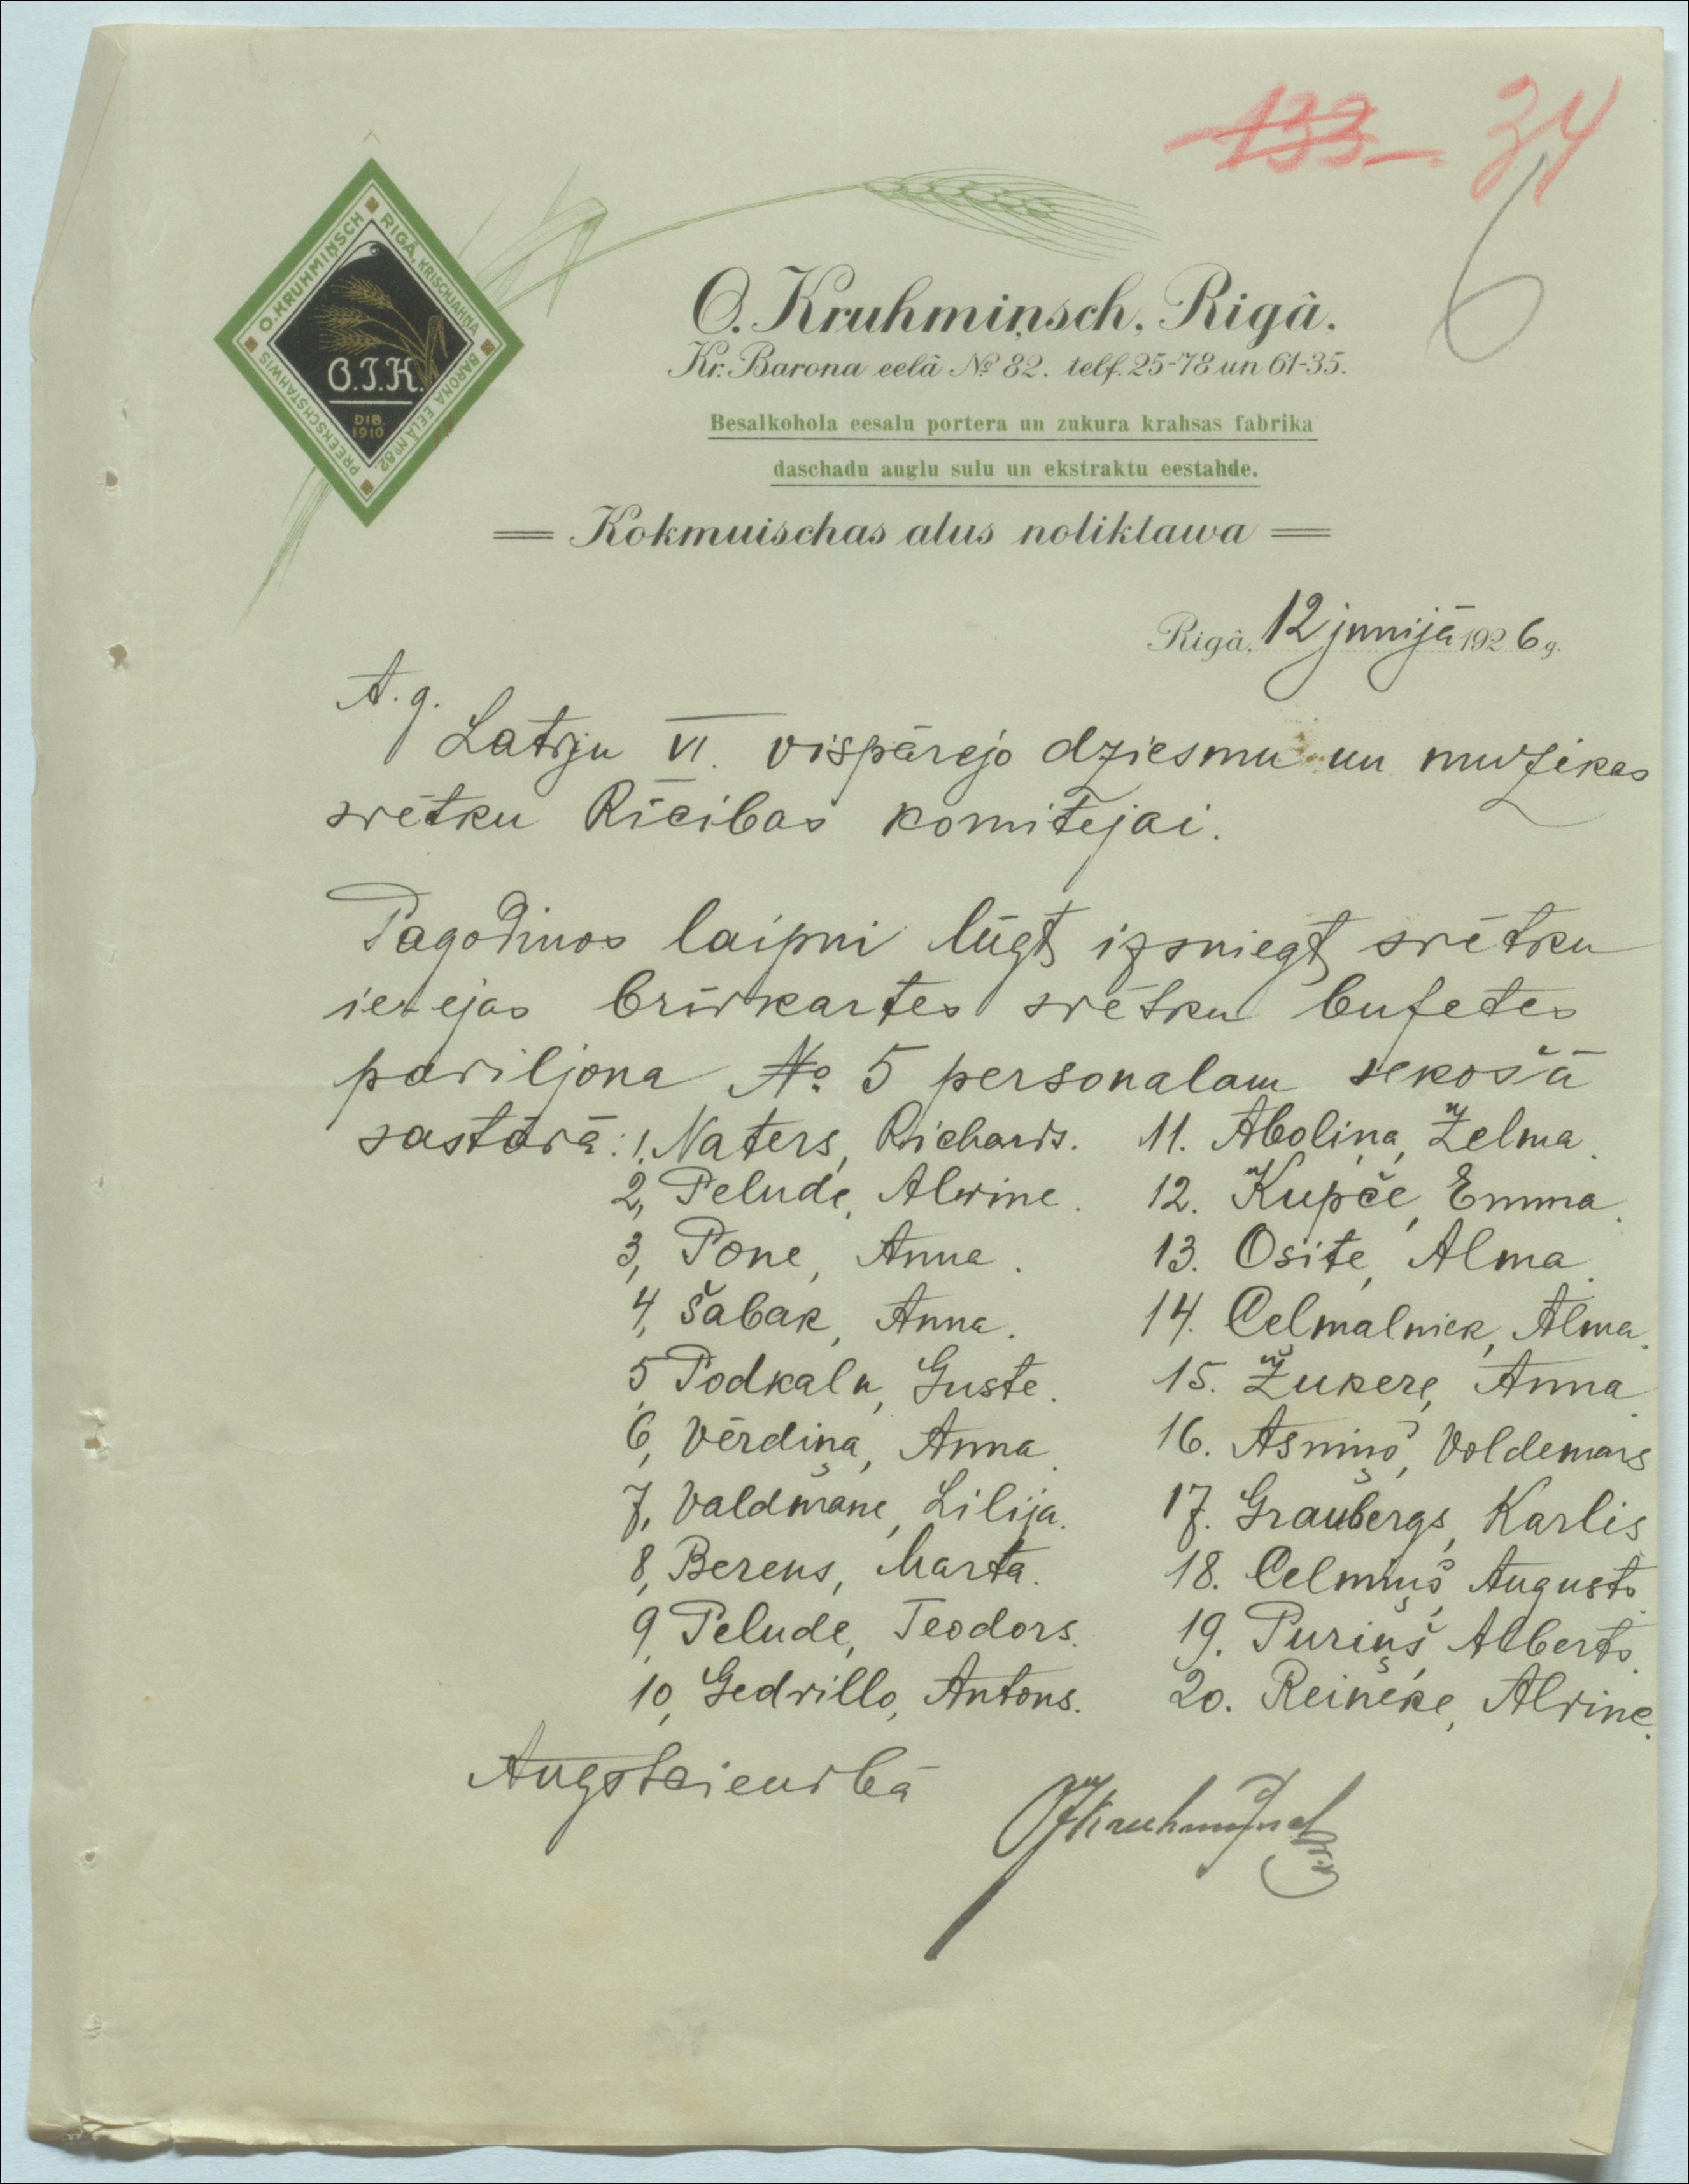 133 34
6
O. KRUHMIŅSCH RIGÂ, KRISCHJAHNA BARONA EELÂ № 82.
PREEKSCHSTAHWIS
O.J.K.
DIB.
1910
O. Kruhmiņsch, Rigâ.
Kr. Barona eelâ № 82. telf. 25-78 un 61-35.
Besalkohola eesalu portera un zukura krahsas fabrika
daschadu auglu sulu un ekstraktu eestahde.
Kokmuischas alus noliktawa
Rigâ, 12 junijā 1926 g.
A. g.
Latvju VI. vispārejo dziesmu un muzikas
svētku Rīcibas komitejai.
Pagodinos laipni lūgt izsniegt svētku
ieejas brīvkartes svētku bufetes
paviljona № 5 personalam sekošā
sastāvā: 1, Naters, Richards. 11. Aboliņa, Zelma.
2, Pelude, Alvine. 12. Kupče, Emma.
3, Pone, Anna. 13. Osite, Alma.
4, Šabak, Anna. 14. Celmalniek, Alma.
5, Podkaln, Guste. 15. Žukere, Anna.
6, Vērdiņa, Anna. 16. Asmiņš, Voldemars
7, Valdmane, Lilija. 17. Graubergs, Karlis
8, Berens, Marta. 18. Celmiņš, Augusts.
9, Pelude, Teodors. 19. Puriņš, Alberts.
10, Gedrillo, Antons. 20. Reineke, Alvine.
Augstcienibā